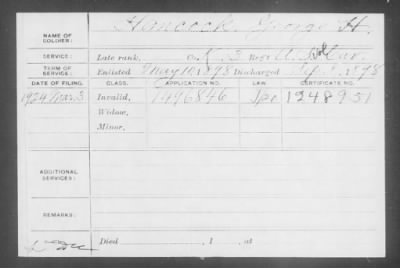 NAME OF SOLDIER: Hancock, George H.
SERVICE: Late rank, Co. K, 3 Reg't U.S. Vol Cav.
TERM OF SERVICE: Enlisted May 10, 1898 Discharged Sep. 8, 1898
DATE OF FILING. CLASS. APPLICATION NO. LAW. CERTIFICATE NO.
1924 Mar. 3 Invalid, 1496846 Spa 1248951
Widow,
Minor,
ADDITIONAL SERVICES:
REMARKS:
Died , 1 , at